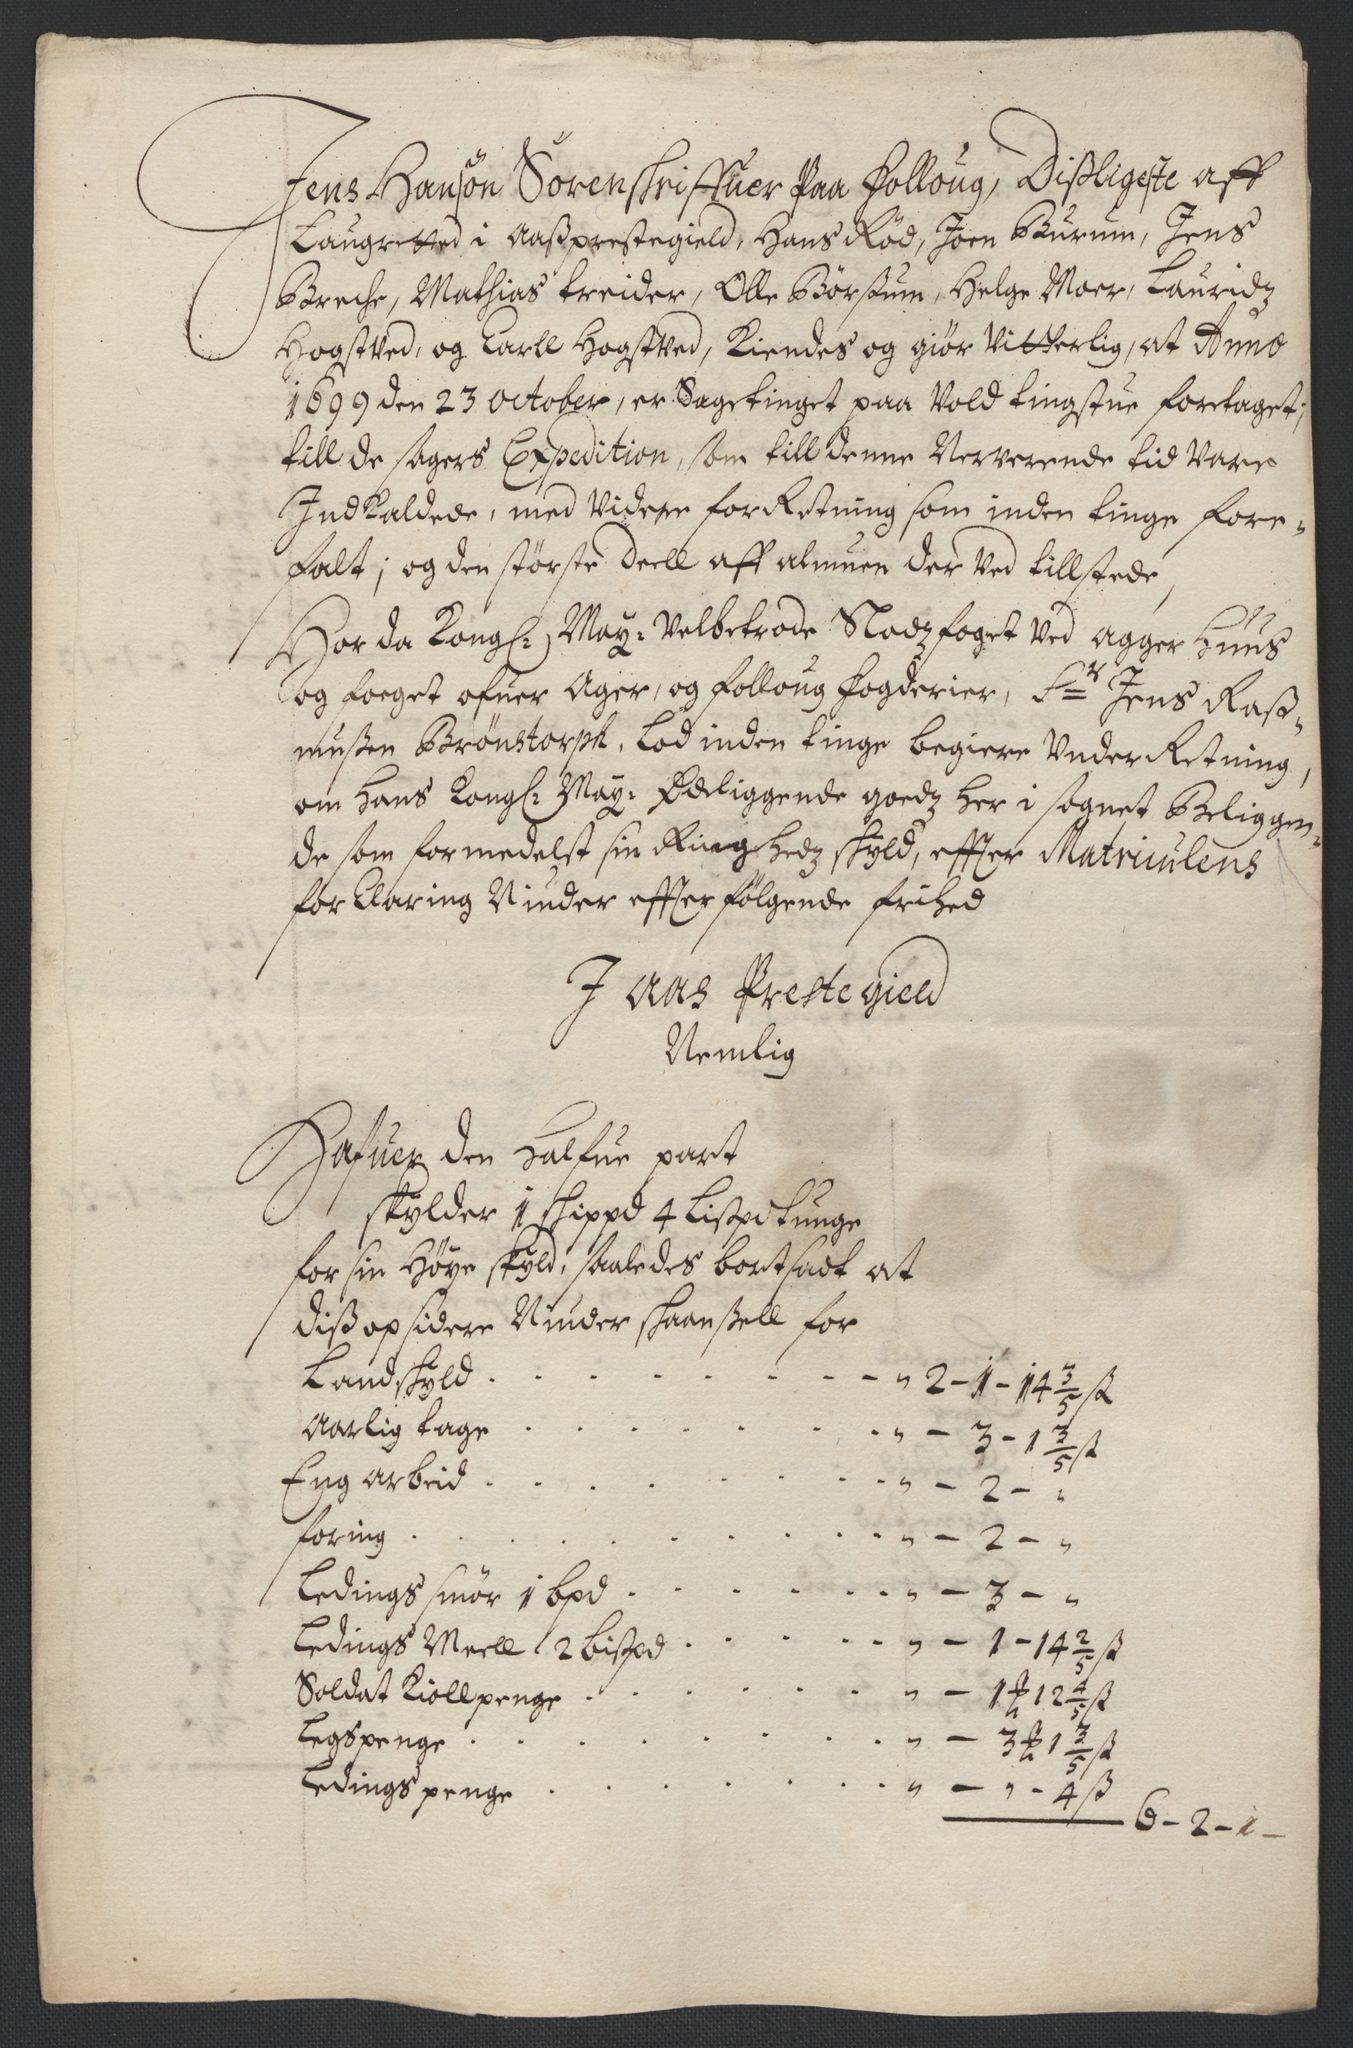 Jens Hansøn Sorenskriffuer Paa Folloug, Dißligeste aff
Laugretted i Aaßprestegield, Hans Rød, Joen Burum, Jens
Breche, Mathias Kreider, Olle Børsum, Helge Moer, Lauridz
Hogstved, og Carll Hogstved, Kiendes og giør Vitterlig, at Anno
1699 den 23 October, er Sagetinget paa Vold tingstue foretaget,
till de sagers Expedition, som till denne Nerverende tid Vare
Indkaldede, med Videre forRetning som inden tinge fore-
falt; og den største deell aff almuen der Ved tillstede,
Hor da Kongl: May: Velbetrode Slodzfoget Ved Agger Huus
og foeget ofuer Ager, og Folloug fogderier, Sr Jens Raß-
mußen Brønstorph, Lod inden tinge begiere VnderRetning,
om Hans Kongl: May: Ødeliggende goedz her i sognet Beliggen-
de som formedelst sin Ringhedz skyld, effter Matriculens
forClaring Niuder effterfølgende frihed
J Aas Prestegield
Nemlig
Hafuer den halfue part
skylder 1 skippd 4 Lißpd tunge
for sin Høye skyld, saaledes bortsadt at
diß opsidere Niuder skaanßell for
Landskyld . . . . . . . . - „ 2 - 1 - 14 3/5 ß
Aarlig tage . . . . . . . „ - 3 - 1 3/5 ß
Eng arbeid . . . . . . . „ - 2 - „
foring . . . . . . . . „ - 2 - „
Ledings smør 1 bpd . . . . . „ - 3 - „
Ledings Meell 2 bißpd . . . . „ - 1 - 14 2/5 ß
Soldat Kiollpenge . . . . . „ - 1 ꝶ 12 4/5 ß
Legspenge . . . . . . . „ - 3 ꝶ 1 3/5 ß
Ledingspenge . . . . . . „ - „ - 4 ß
6 - 2 - 1 -